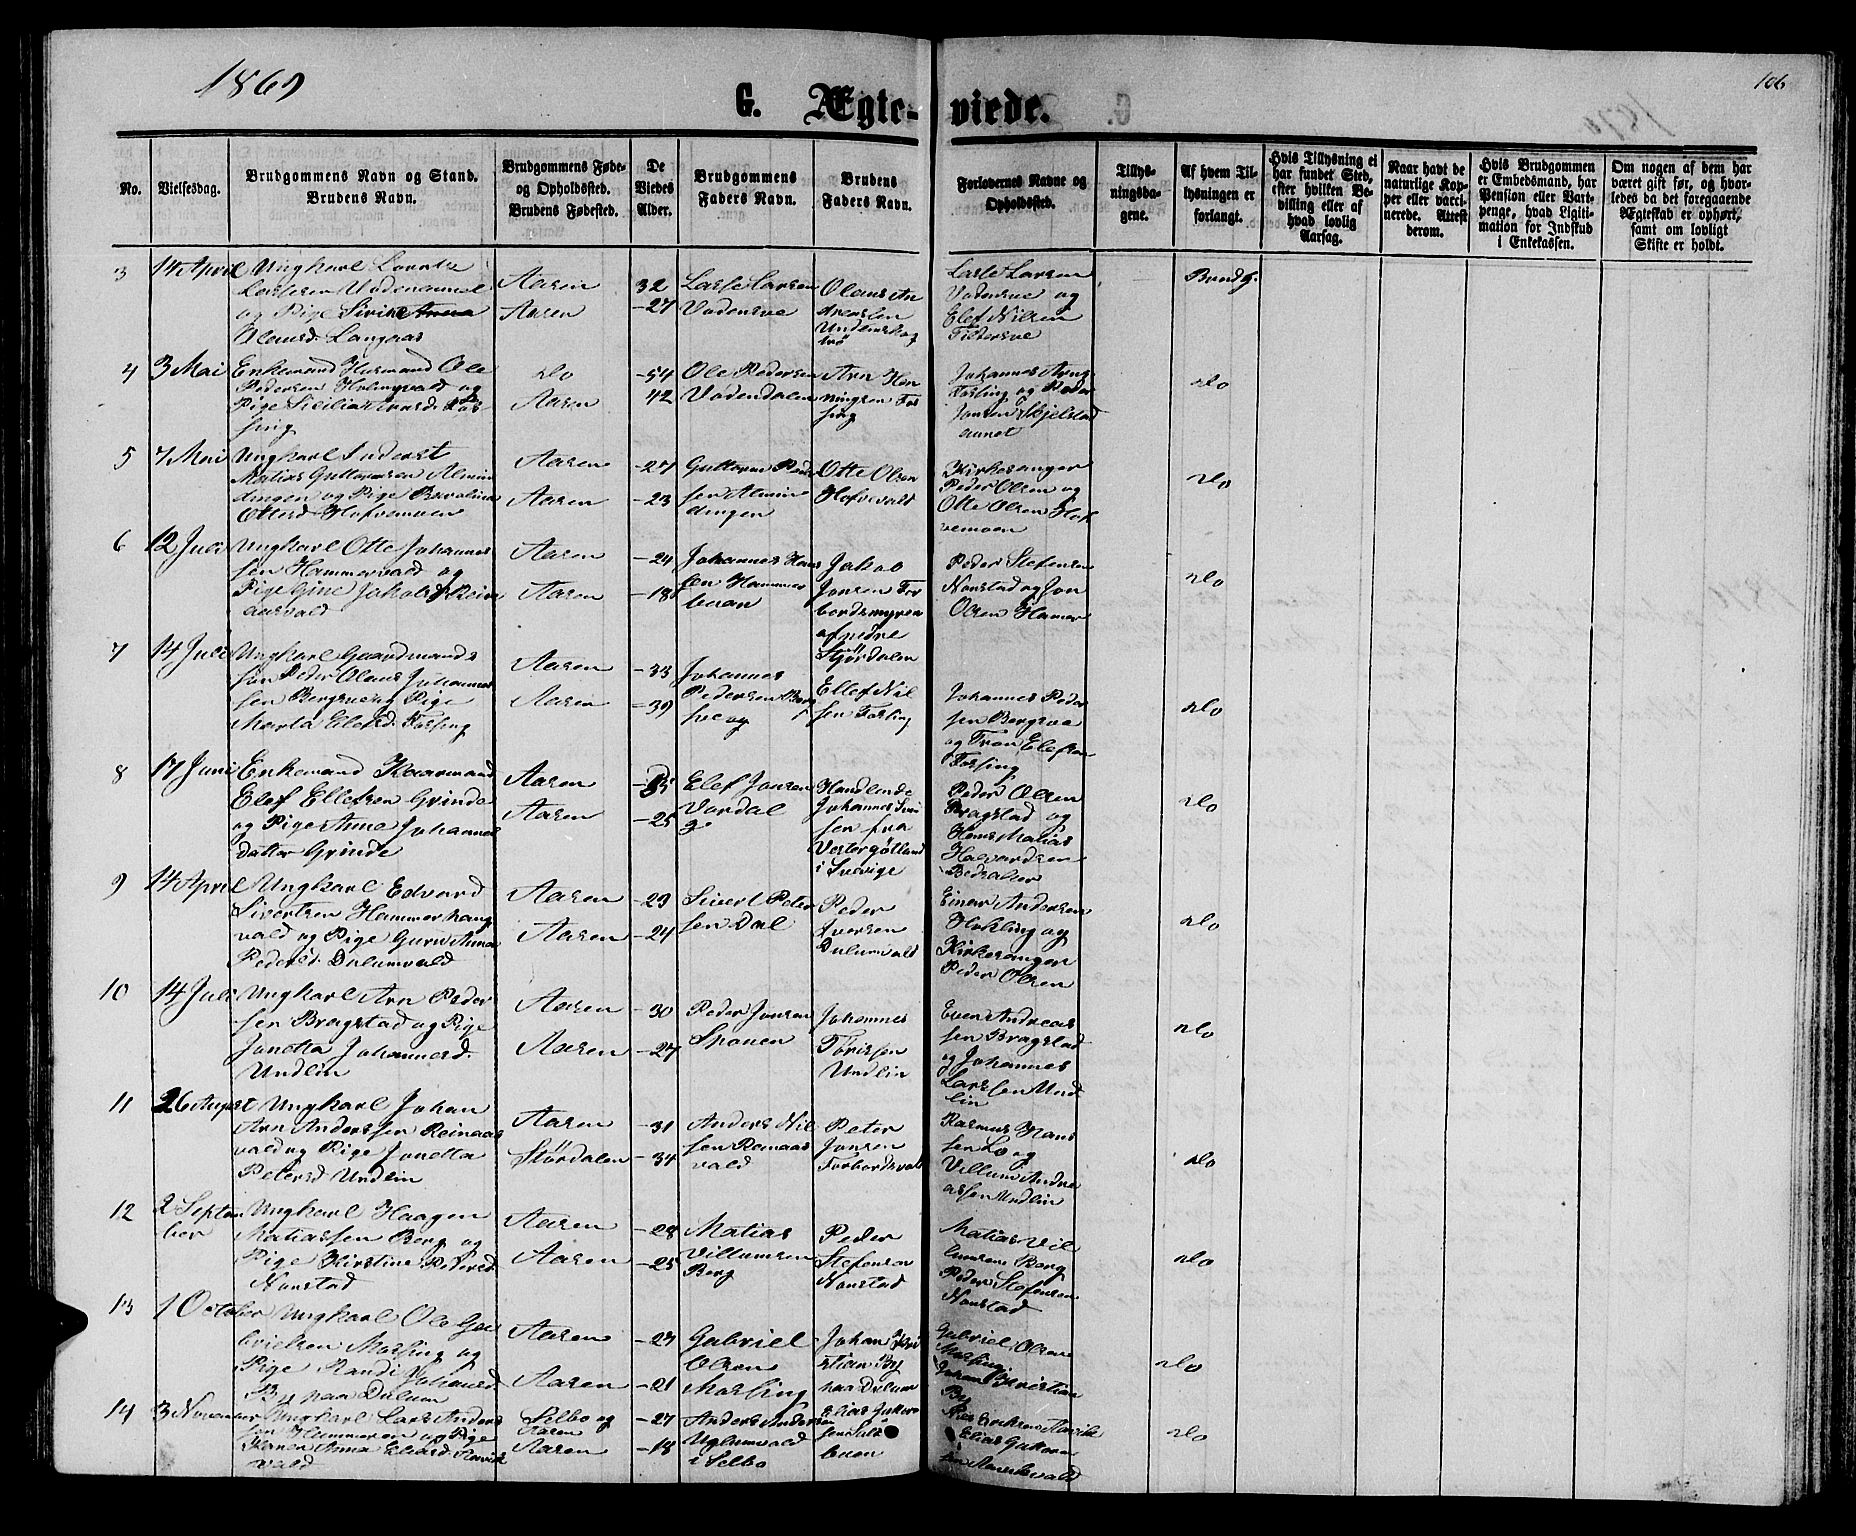 1869
106
G. Ægte-viede.
No.
Vielsesdag.
Brudgommens Navn og Stand.
Brudens Navn.
Brudgommens Føde-
og Opholdssted.
Brudens Fødested.
De
Viedes
Alder.
Brudgommens
Faders Navn.
Brudens
Faders Navn.
Forlovernes Navne og
Opholdssted.
Tillys-
ningsda-
gene.
Af hvem Til-
lysningen er
forlangt.
Hvis Tillysning ei
har fundet Sted,
efter hvilken Be-
villing eller af
hvad lovlig
Aarsag.
Naar havt de
naturlige Kop-
per eller vacci-
nerede. Attest
derom.
Hvis Brudgommen
er Embedsmand, har
Pension eller Vart-
penge, hvad Ligiti-
mation for Indskud
i Enkekassen.
Om nogen af dem har
været gift før, og hvor-
ledes da det foregaaende
Ægteskab er ophørt,
samt om lovligt
Skifte er holdt.
3
14 April
Ungkarl Lorents
Lassesen Vodenaunet
og Pige Sirine Anna
Olausd. Langaas
Aasen
Aasen
32
-27
Lasse Larsen
Vodensve
Olaus An
dreassen
Undenshog
trø
Lasse Larsen
Vodensve og
Elef Nilsen
Tildersve
Brudg.
4
3 Mai
Enkemand Husmand Ole
Pedersen Holmsvald og
Pige Sicilia Arnsd. Fos
sing
do
Aasen
-54
42
Ole Pedersen
Vodendalen
Arn Hen
ningsen Fos
sing
Johannes Arns
Fossing og Peder
Jonsen Skjelstad
aunet
do
5
7 Mai
Ungkarl Inderst
Matias Guttormsen Almin
dingen og Pige Beralina
Ottesd Hofvemoen
Aasen
Aasen
-27
-23
Guttorm Peder
sen Almin
dingen
Otte Olsen
Hofvevald
Kirkesanger
Peder Olsen og
Otte Olsen Hof
vemoen
do
6
12 Juli
Ungkarl Otte Johannes
sen Hammervald og
Pige Gine Jakobsd Rein
aasvald
Aasen
Aasen
-24
-18
Johannes Hans
sen Hammer
buan
Jakob
Jonsen For
bordsmyren
af nedre
Stjørdalen
Peder Stefensen
Nonstad og Jon
Olsen Hamer
do
7
14 Juli
Ungkarl Gaardmands
søn Peder Olaus Johannes
sen Bergsve og Pige
Marta Elefsd. Fossing
Aasen
Aasen
-33
-39
Johannes
Pedersen Berg
sve og
Ellef Nil
sen Fossing
Johannes Peder
sen Bergsve
og Tron Elefsen
Fossing
do
8
17 Juni
Enkemand Kaarmand
Elef Ellefsen Grinde
og Pige Anna Johannes
datter Grinde
Aasen
Aasen
-25
Elef Jonsen
Vordal
Handlende
Johannes Svi
sen fra
Vestergøtland
i Sverige
Peder Olsen
Bragstad og
Hans Matias
Havardsen
do
9
14 April
Ungkarl Edvard
Sivertsen Hammerhaug
vald og Pige Guru Anna
Pedersd. Dulumvald
Aasen
Aasen
-29
-24
Sivert Peter
sen Dal
Peder
Iversen
Dulumvald
Einar Andersen
Hokling og
Kirkesanger
Peder Olsen
do
10
14 Juli
Ungkarl Arn Peder
sen Bragstad og Pige
Janetta Johannesd.
Undlin
Aasen
Aasen
-30
-27
Peder Jonsen
Spauen
Johannes
Torissen
Undlin
Even Andreas
sen Bragstad
og Johannes
Larssen Und
lin
do
11
26 August
Ungkarl Johan
Arn Anderssen Reinaas
vald og Pige Janetta
Petersd Undlin
Aasen
Størdalen
-31
-34
Anders Nil
sen Reinaas
vald
Peter
Jonsen
Forbordsvald
Rasmus Hans
sen Lo og
Villum Andre
assen Undlin
do
12
2 Septem
ber
Ungkarl Haagen
Matiassen Berg og
Pige Kirstine Pedersd
Nonstad
Aasen
Aasen
-28
-25
Matias
Villumsen
Berg
Peder
Stefensen
Nonstad
Matias Vil
lumsen Berg
Peder Stefensen
Nonstad
do
13
1 October
Ungkarl Ole Ga
brielsen Mossing og
Pige Randi Johansd
By paa Dulum
Aasen
Aasen
-27
-21
Gabriel
Olsen
Mossing
Johan Kri
stian By
paa Dulum
Gabriel Olsen
Mossing
Johan Kristian
By
do
14
3 November
Ungkarl Lars Anders
sen Hammeren og Pige
Karen Anna Eliasd. Ravik
vald
Selbo og
Aasen
Aasen
-27
-18
Anders Andersen
Uglumvald
i Selbo
Elias Guttorm
sen
buen
Elias Guttorm
do